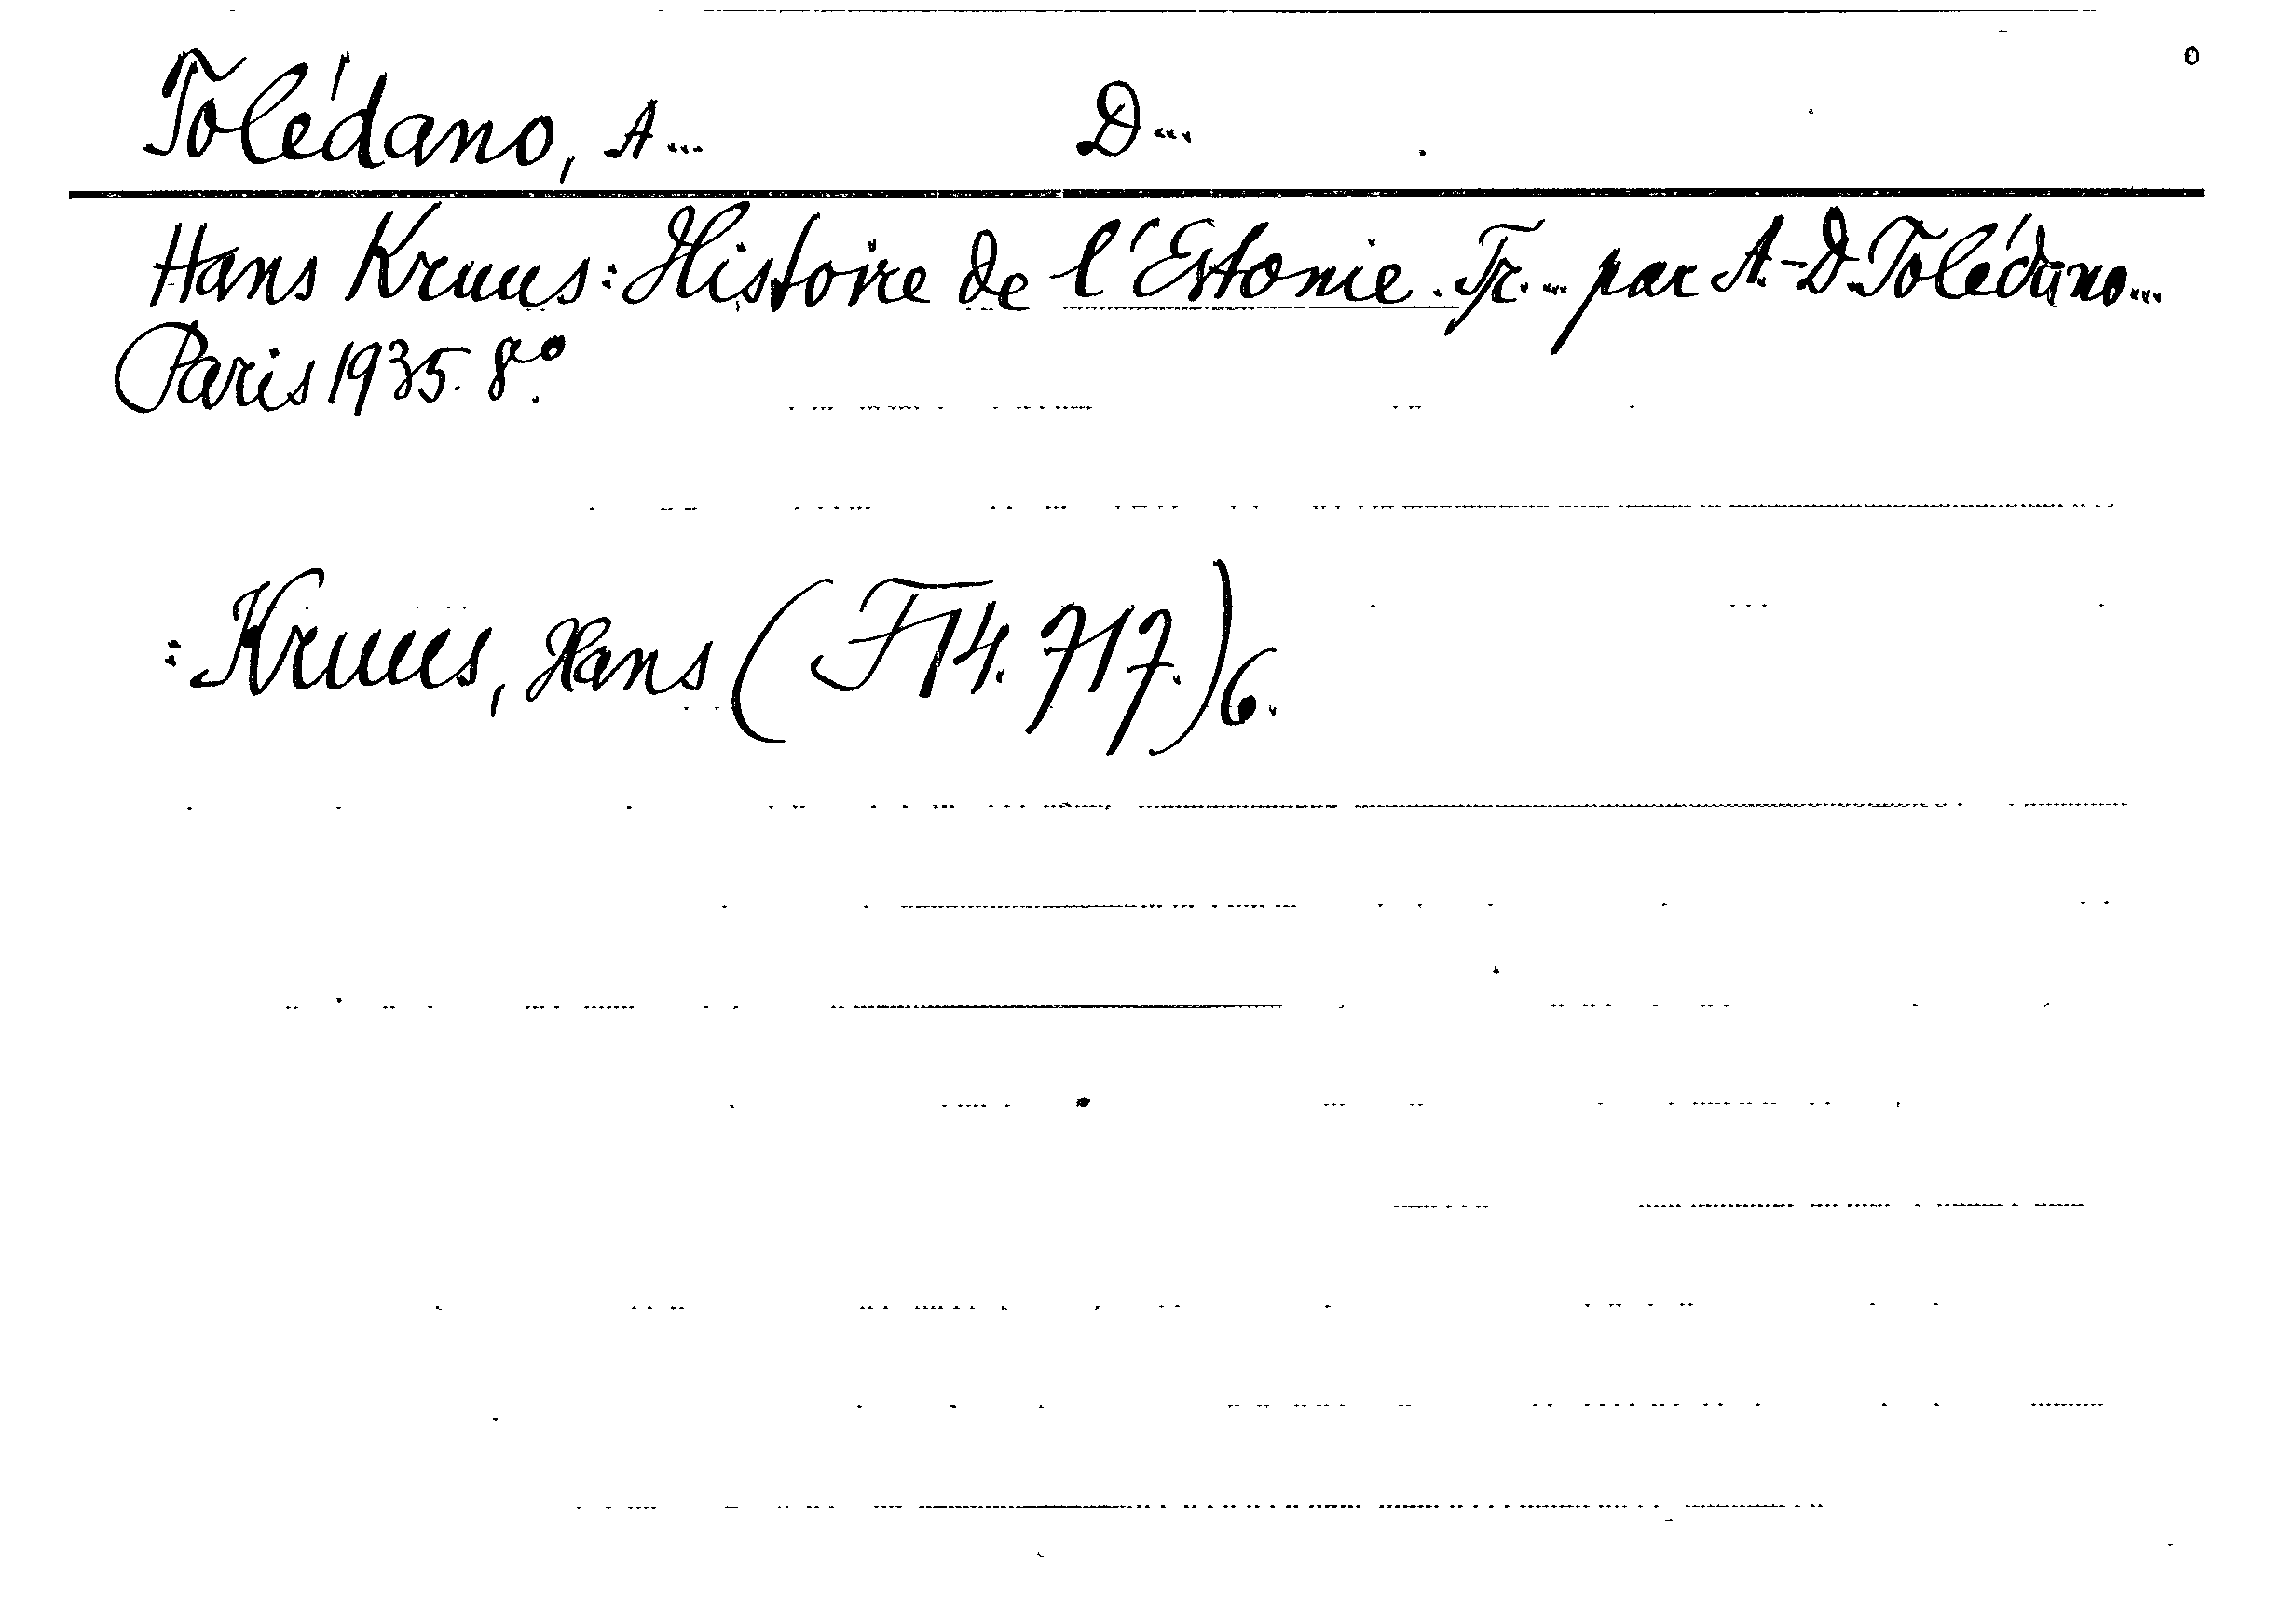 Tolédano, A... D...
Hans Kruus: Histoire de l'Estonie. Tr.... par A.-D. Tolédano...
Paris 1935. 8°.
: Kruus, Hans (F 14.717.) 6.